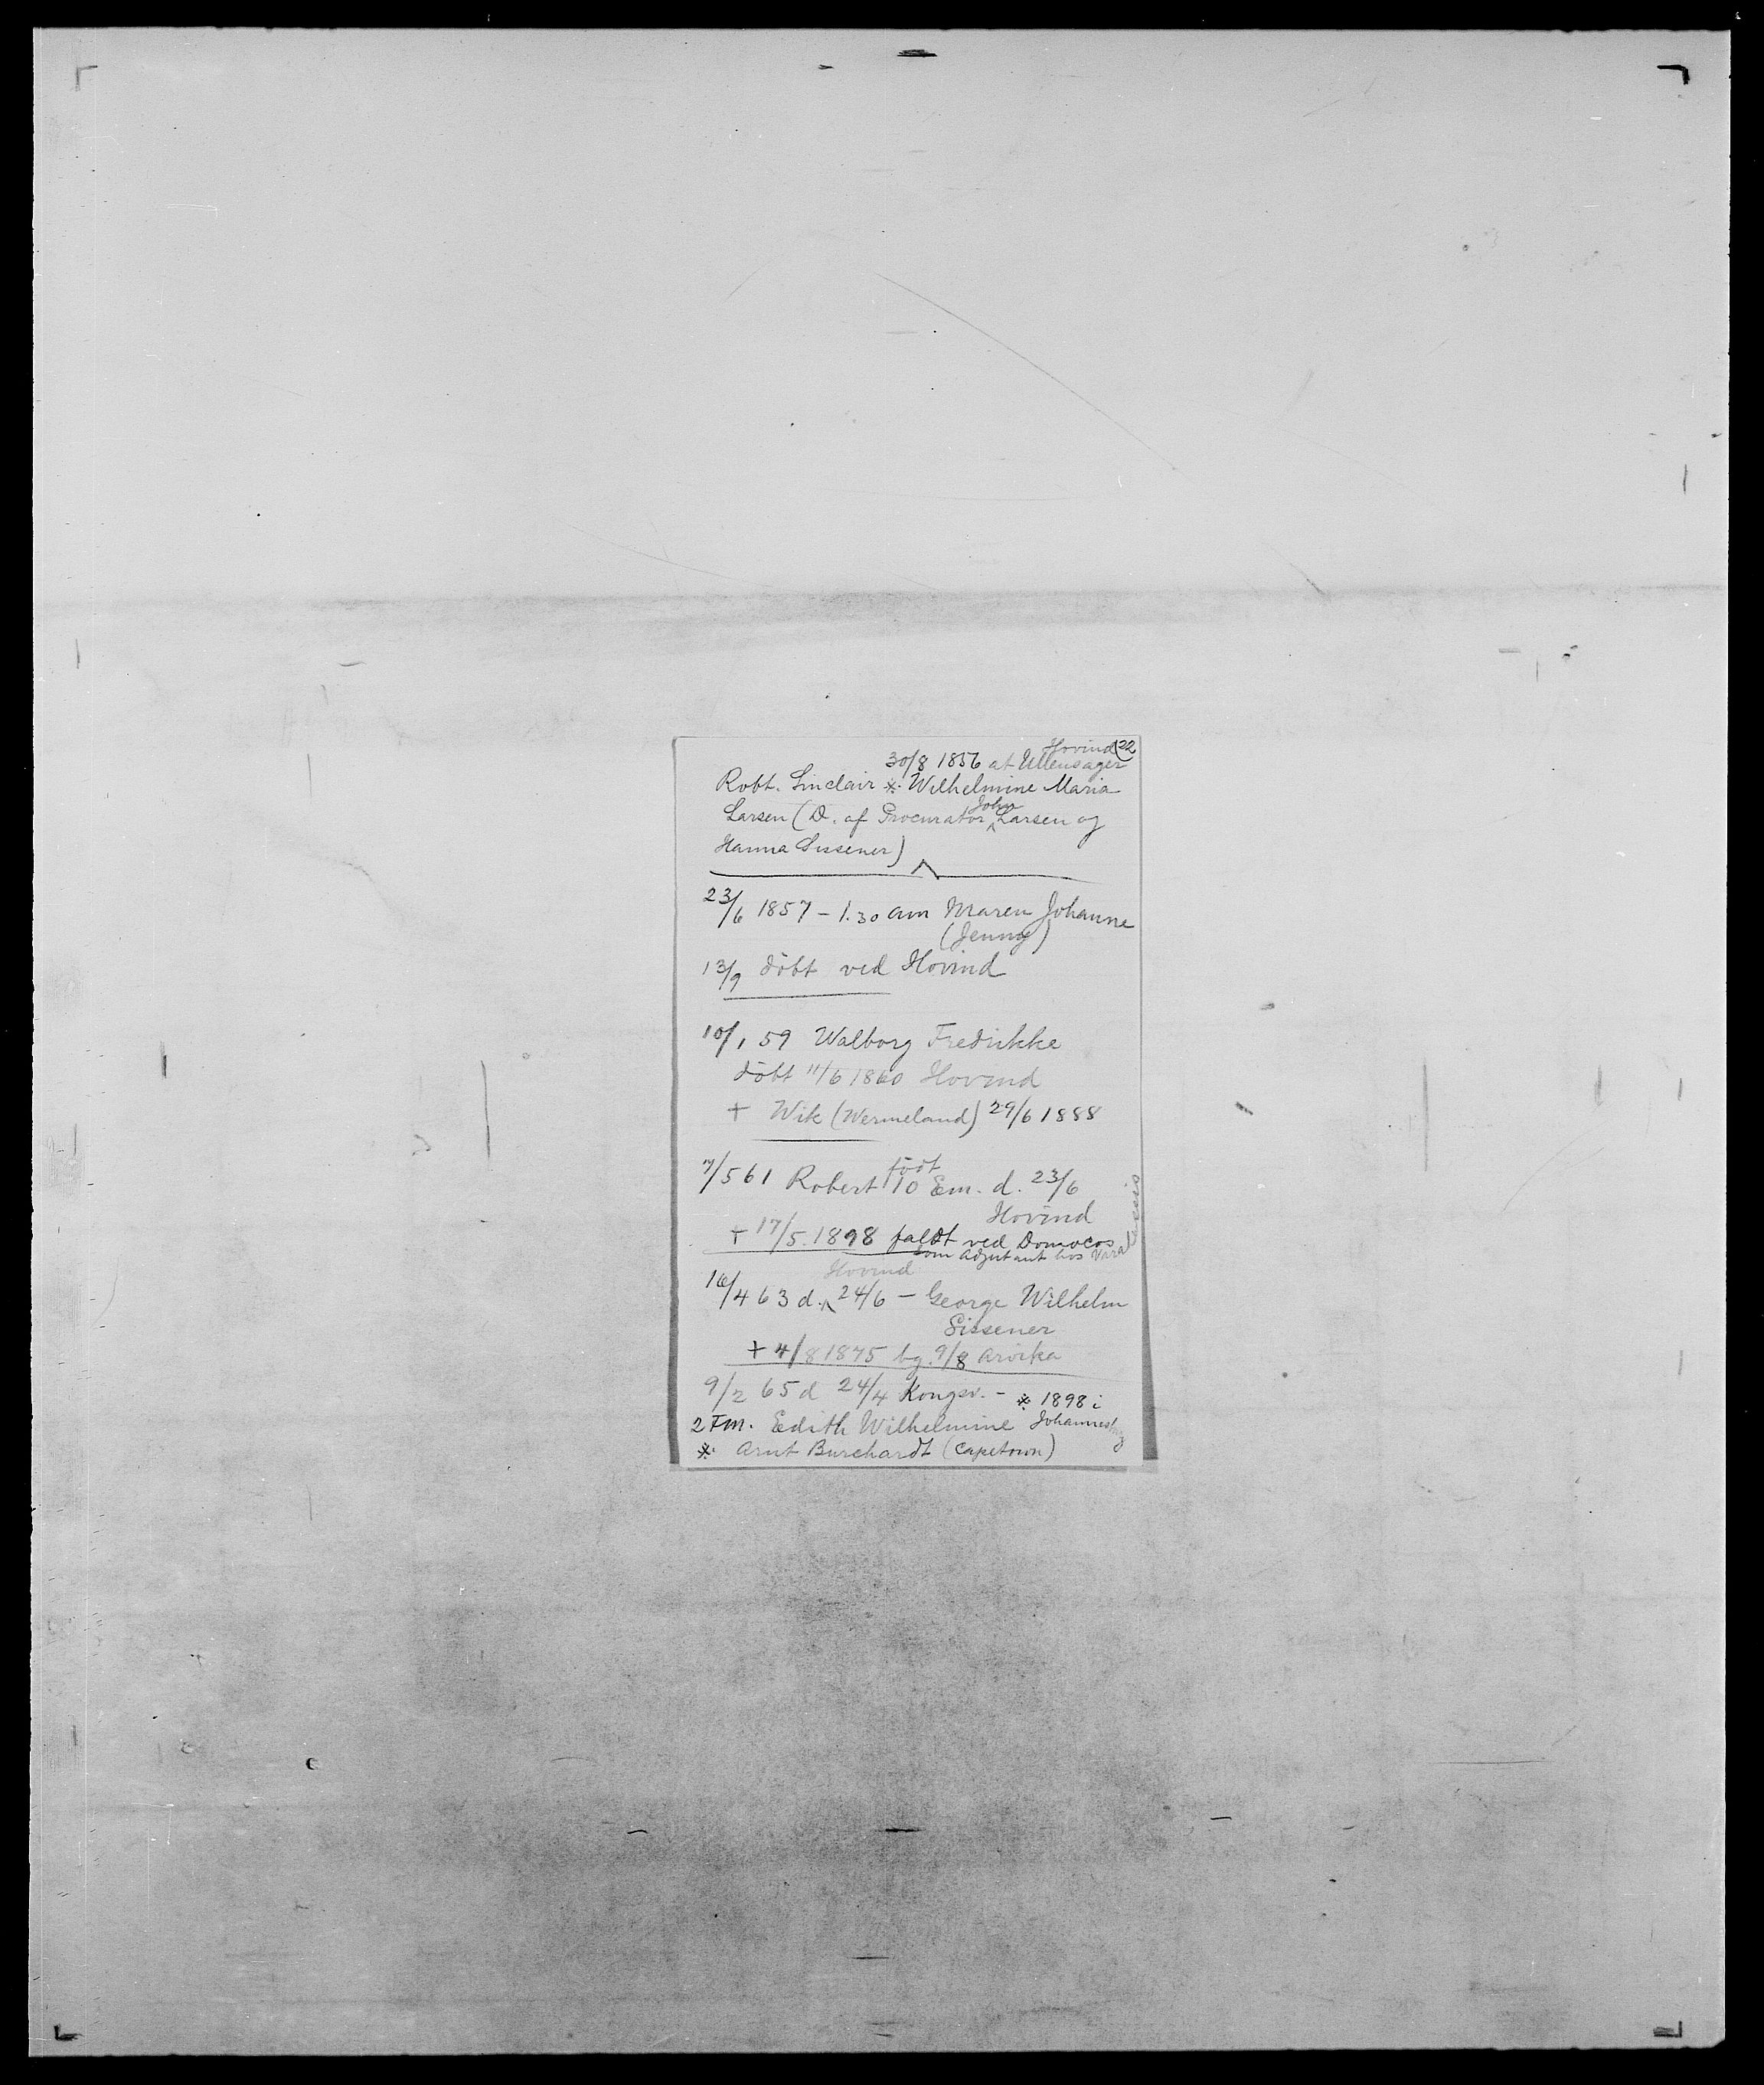 Hovind (22
30/8 1856 at Ullensager
Robt. Sinclair ※ Wilhelmine Maria
John
Larsen (D. af Procurator ^ Larsen og
Hanna Sissener)
23/6 1857 – 1.30 am Maren Johanne
(Jenny)
13/9 döbt ved Hovind
10/1 59 Walborg Fredrikke
döbt 11/6 1860 Hovind
+ Wik (Wermeland) 29/6 1888
7/5 61 Robert födt 10 Em. d. 23/6
Hovind
+ 17/5. 1898 faldt ved Domocos
som Adjutant hos Varatassis
Hovind
16/4 63 d. ^ 24/6 – George Wilhelm
Sissener
+ 4/8 1875 bg. 9/8 Arvika
9/2 65 d 24/4 Kongsv. – ※ 1898 i
2 Fm. Edith Wilhelmine Johannesbg
※ Arnt Burchardt (Capetown)